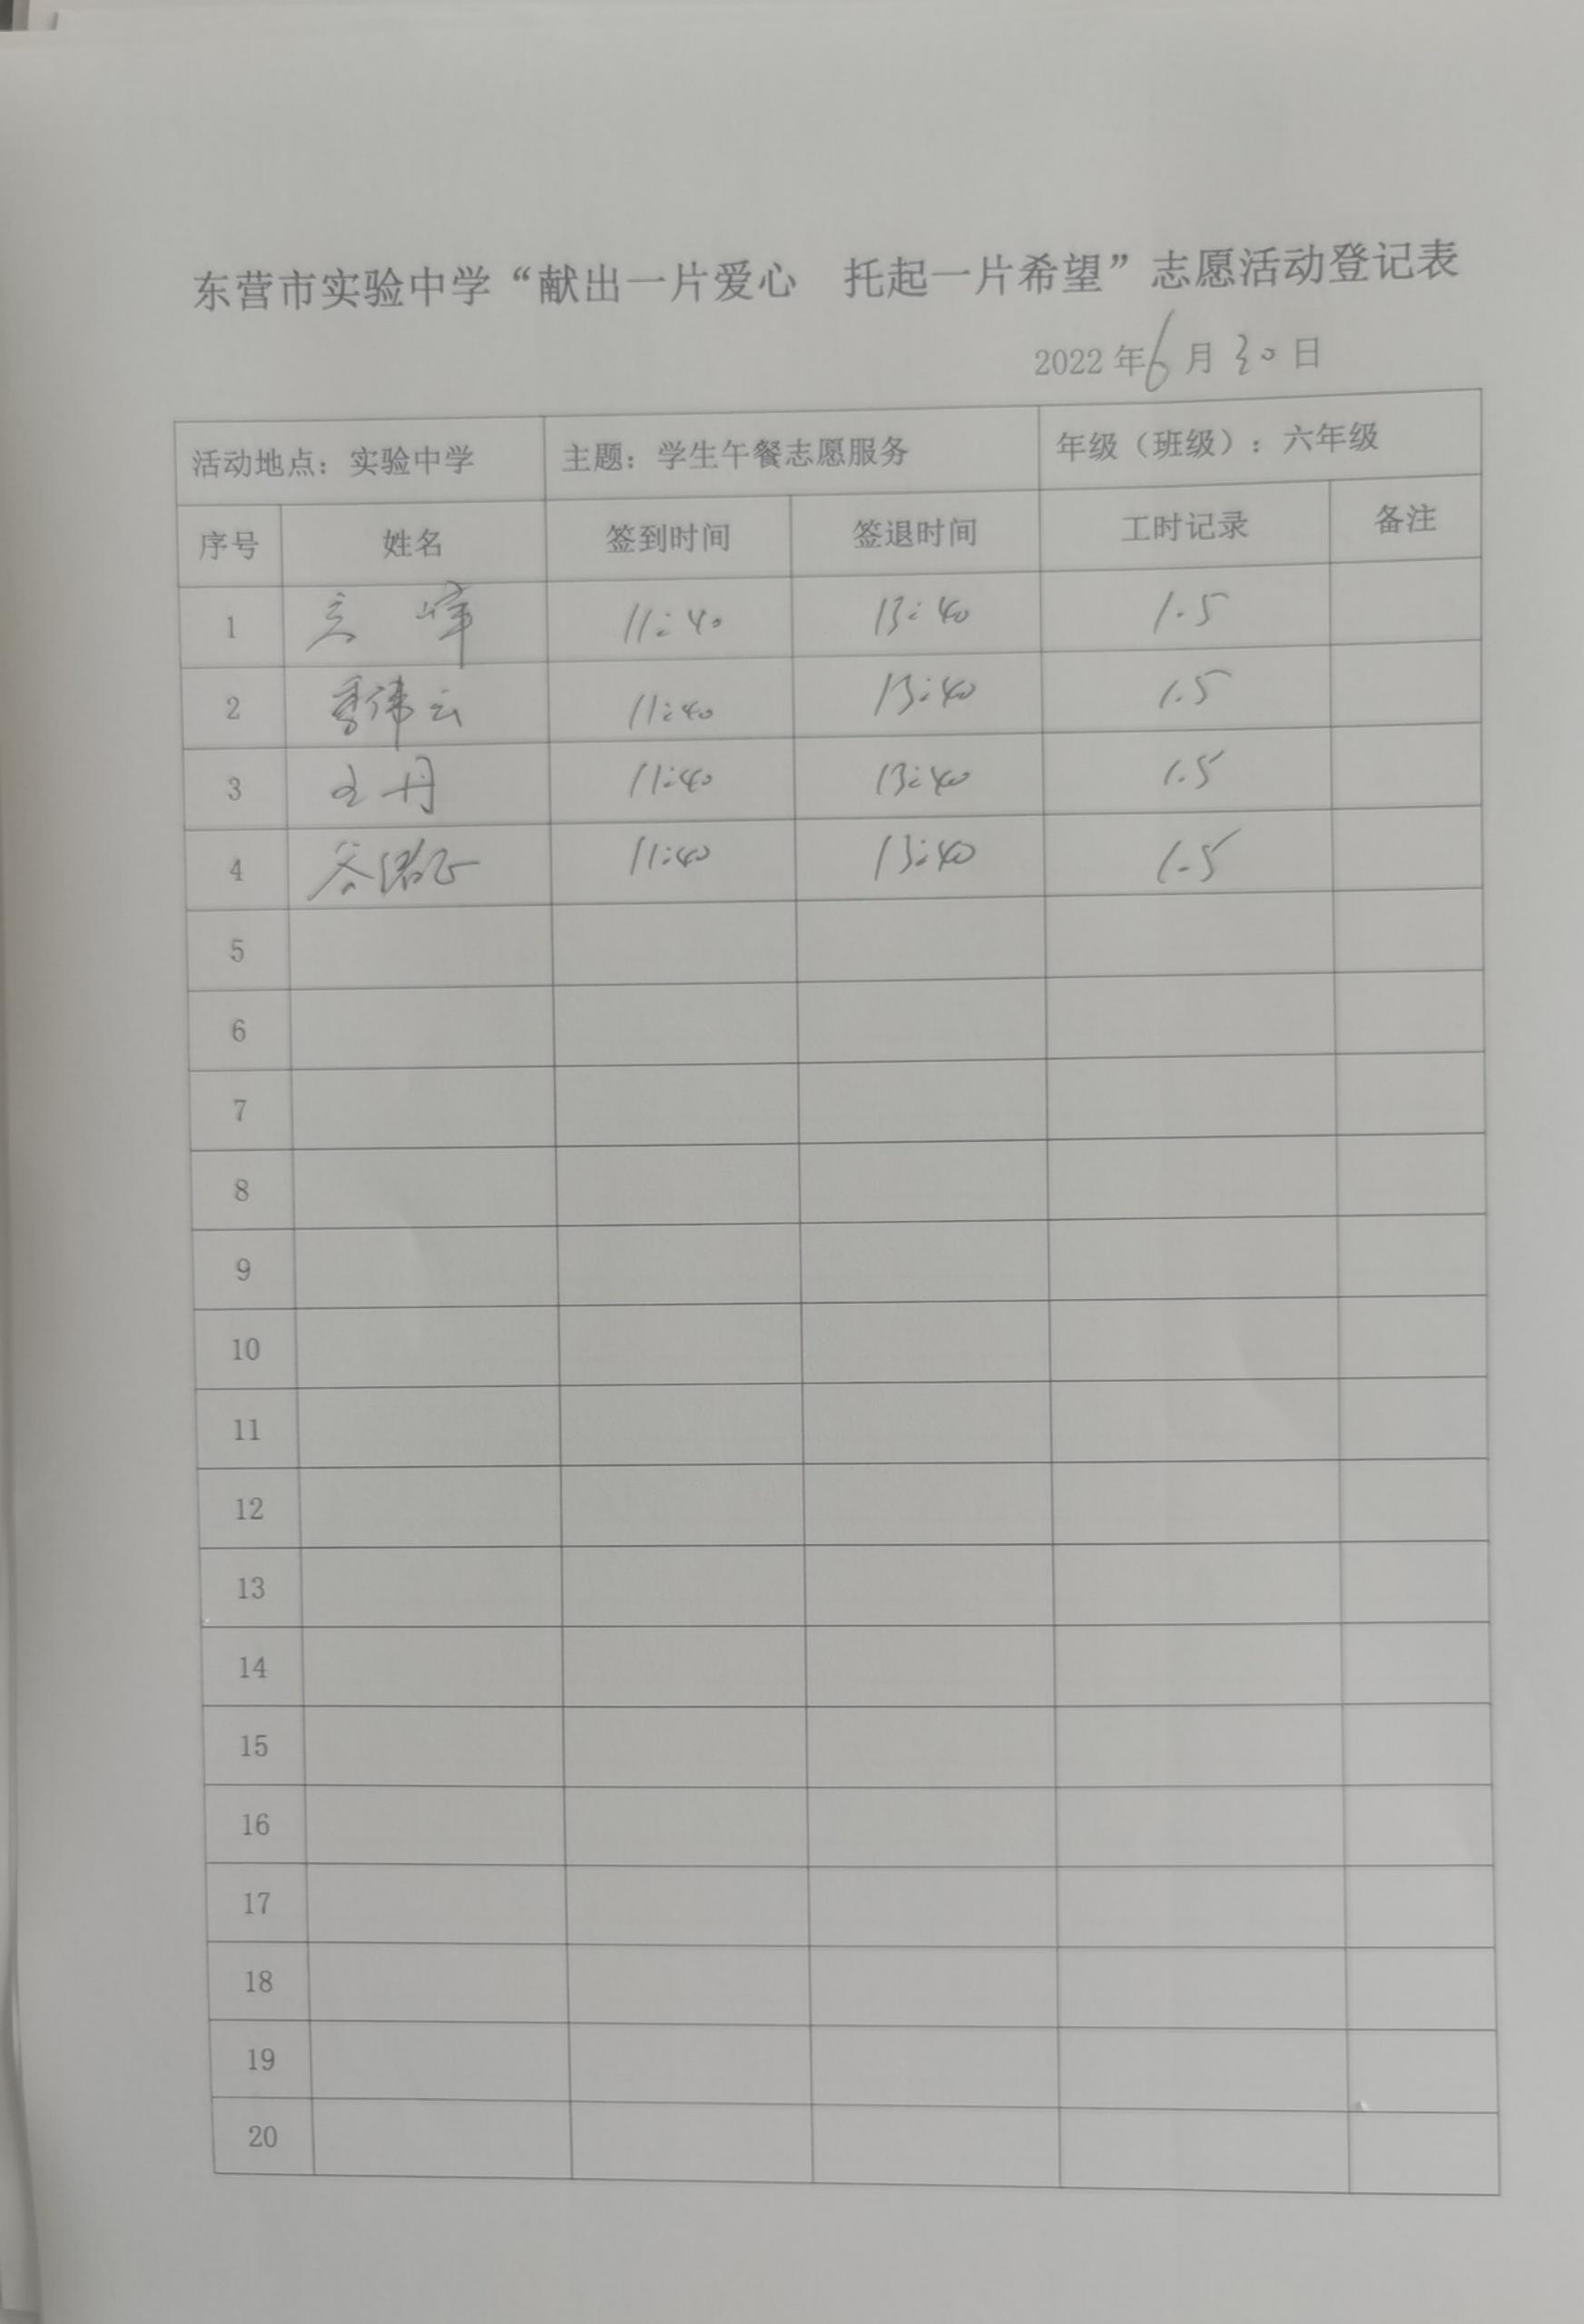 东营市实验中学“献出一片爱心 托起一片希望”志愿活动登记表
2022年6月30日
活动地点：实验中学 主题：学生午餐志愿服务 年级（班级）：六年级
序号 姓名 签到时间 签退时间 工时记录 备注
1 峰 11:40 13:40 1.5
2 季伟云 11:40 13:40 1.5
3 王丹 11:40 13:40 1.5
4 谷 11:40 13:40 1.5
5
6
7
8
9
10
11
12
13
14
15
16
17
18
19
20